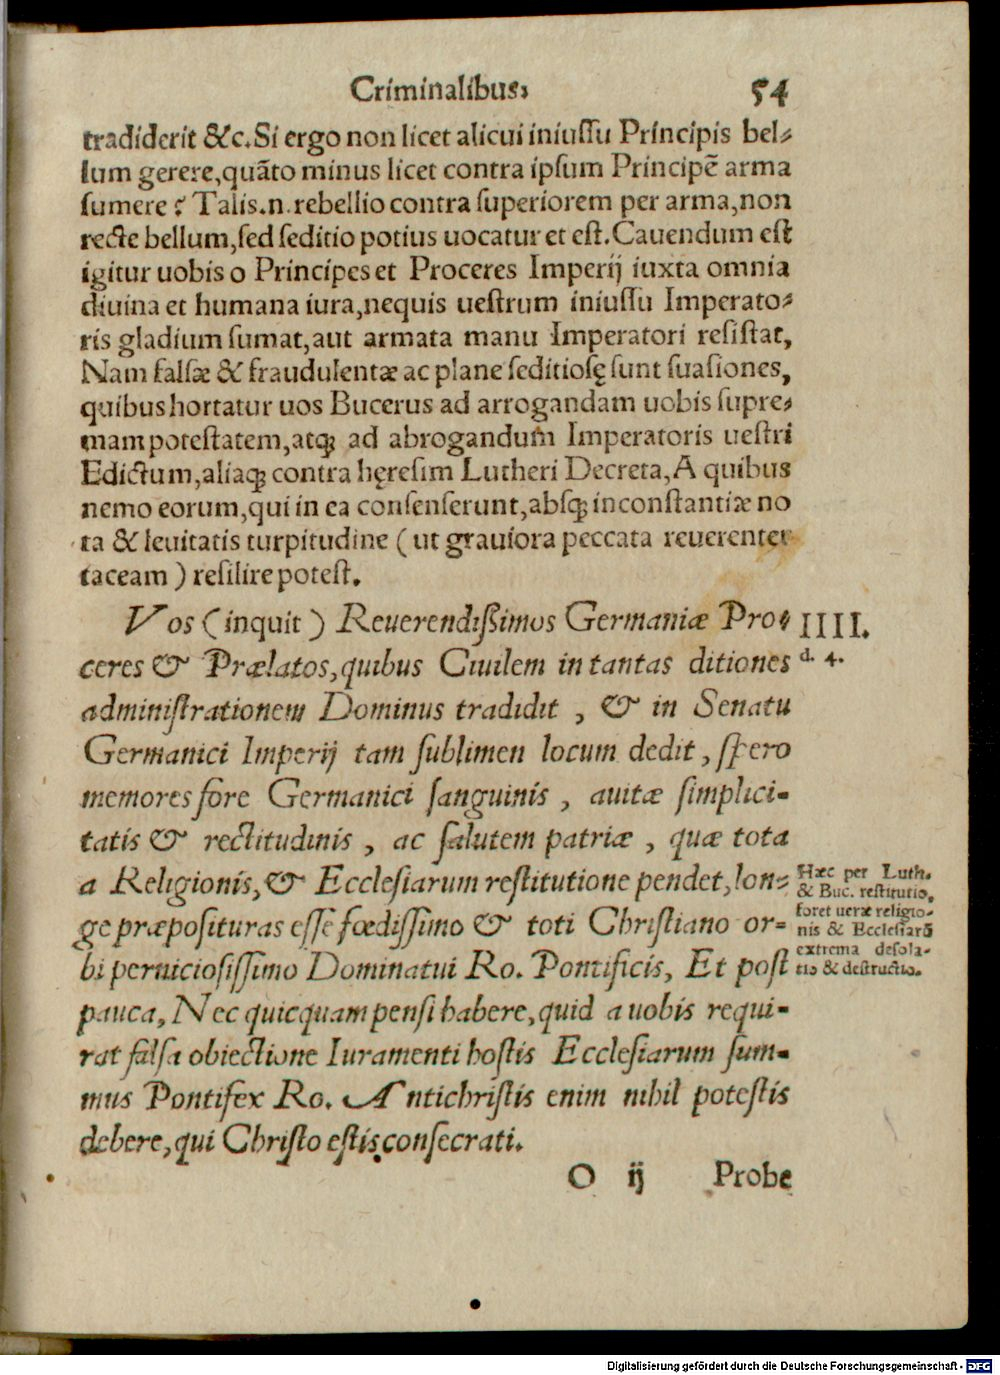 Criminalibus, 54
tradiderit &c. Si ergo non licet alicui iniussu Principis bel⸗
lum gerere, quãto minus licet contra ipsum Principẽ arma
sumere? Talis.n.rebellio contra superiorem per arma, non
recte bellum, sed seditio potius uocatur et est. Cauendum est
igitur uobis o Principes et Proceres Imperij iuxta omnia
diuina et humana iura, nequis uestrum iniussu Imperato⸗
ris gladium sumat, aut armata manu Imperatori resistat,
Nam falsæ & fraudulentæ ac plane seditiosę sunt suasiones,
quibus hortatur uos Bucerus ad arrogandam uobis supre⸗
mam potestatem, atq; ad abrogandum Imperatoris uestri
Edictum, aliaq; contra hęresim Lutheri Decreta, A quibus
nemo eorum, qui in ea consenserunt, absq; inconstantiæ no
ta & leuitatis turpitudine (ut grauiora peccata reuerenter
taceam) resilire potest.
Vos (inquit) Reuerendissimos Germaniæ Pro⸗
ceres & Prælatos, quibus Ciuilem in tantas ditiones
administrationem Dominus tradidit, & in Senatu
Germanici Imperij tam sublimen locum dedit, spero
memores fore Germanici sanguinis, auitæ simplici-
tatis & rectitudinis, ac salutem patriæ, quæ tota
a Religionis, & Ecclesiarum restitutione pendet, lon⸗
ge præposituras esse fœdissimo & toti Christiano or⸗
bi perniciosissimo Dominatui Ro. Pontificis, Et post
pauca, Nec quicquam pensi habere, quid a uobis requi-
rat falsa obiectione Iuramenti hostis Ecclesiarum sum-
mus Pontifex Ro. Antichristis enim nihil potestis
debere, qui Christo estis consecrati.
IIII.
d. 4.
Hæc per Luth.
& Buc. restitutio,
foret ueræ religio-
nis & Ecclesiarũ
extrema desola-
tio & destructio.
O ij Probe
Digitalisierung gefördert durch die Deutsche Forschungsgemeinschaft - DFG